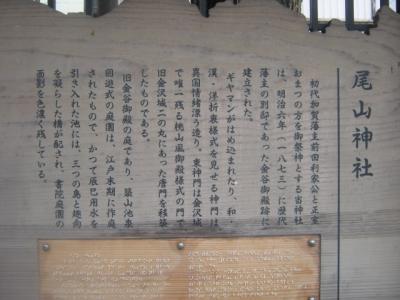 尾山神社
初代加賀藩主前田利家公と正室
おまつの方を御祭神とする当神社
は、明治六年(一八七三)に歴代
藩主の別邸であった金谷御殿跡に
建立された。
ギヤマンがはめ込まれたり、和・
漢・洋折衷様式を見せる神門は、
異国情緒漂う造り。東神門は金沢城
で唯一残る桃山風御殿様式の門で
旧金沢城二の丸にあった唐門を移築
したものである。
旧金谷御殿の庭であり、築山池泉
回遊式の庭園は、江戸末期に作庭
されたもので、かつて辰巳用水を
引き入れた池には、三つの島と趣向
を凝らした橋が配され、書院庭園の
面影を色濃く残している。